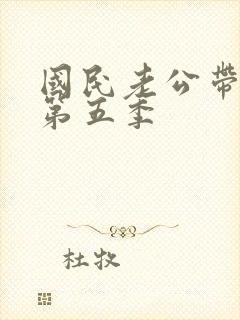 國民老公帶
第五季
杜牧